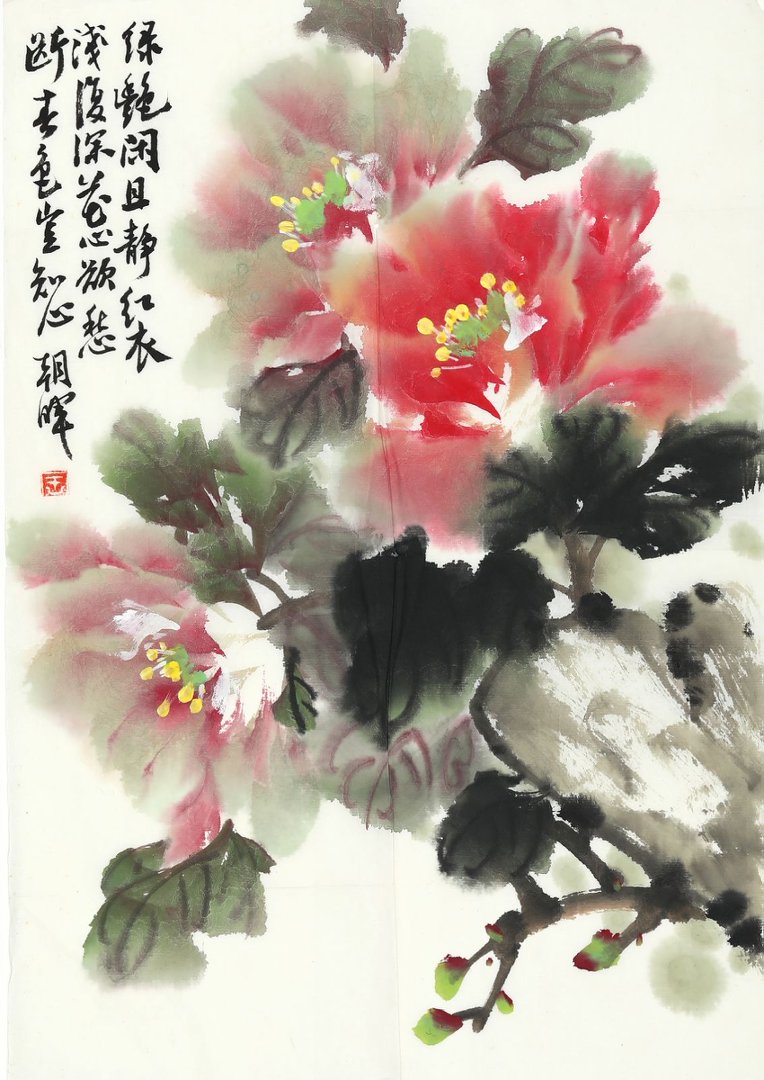 绿艳闲且静红衣
浅复深花心愁
欲断春色岂知心
朝晖